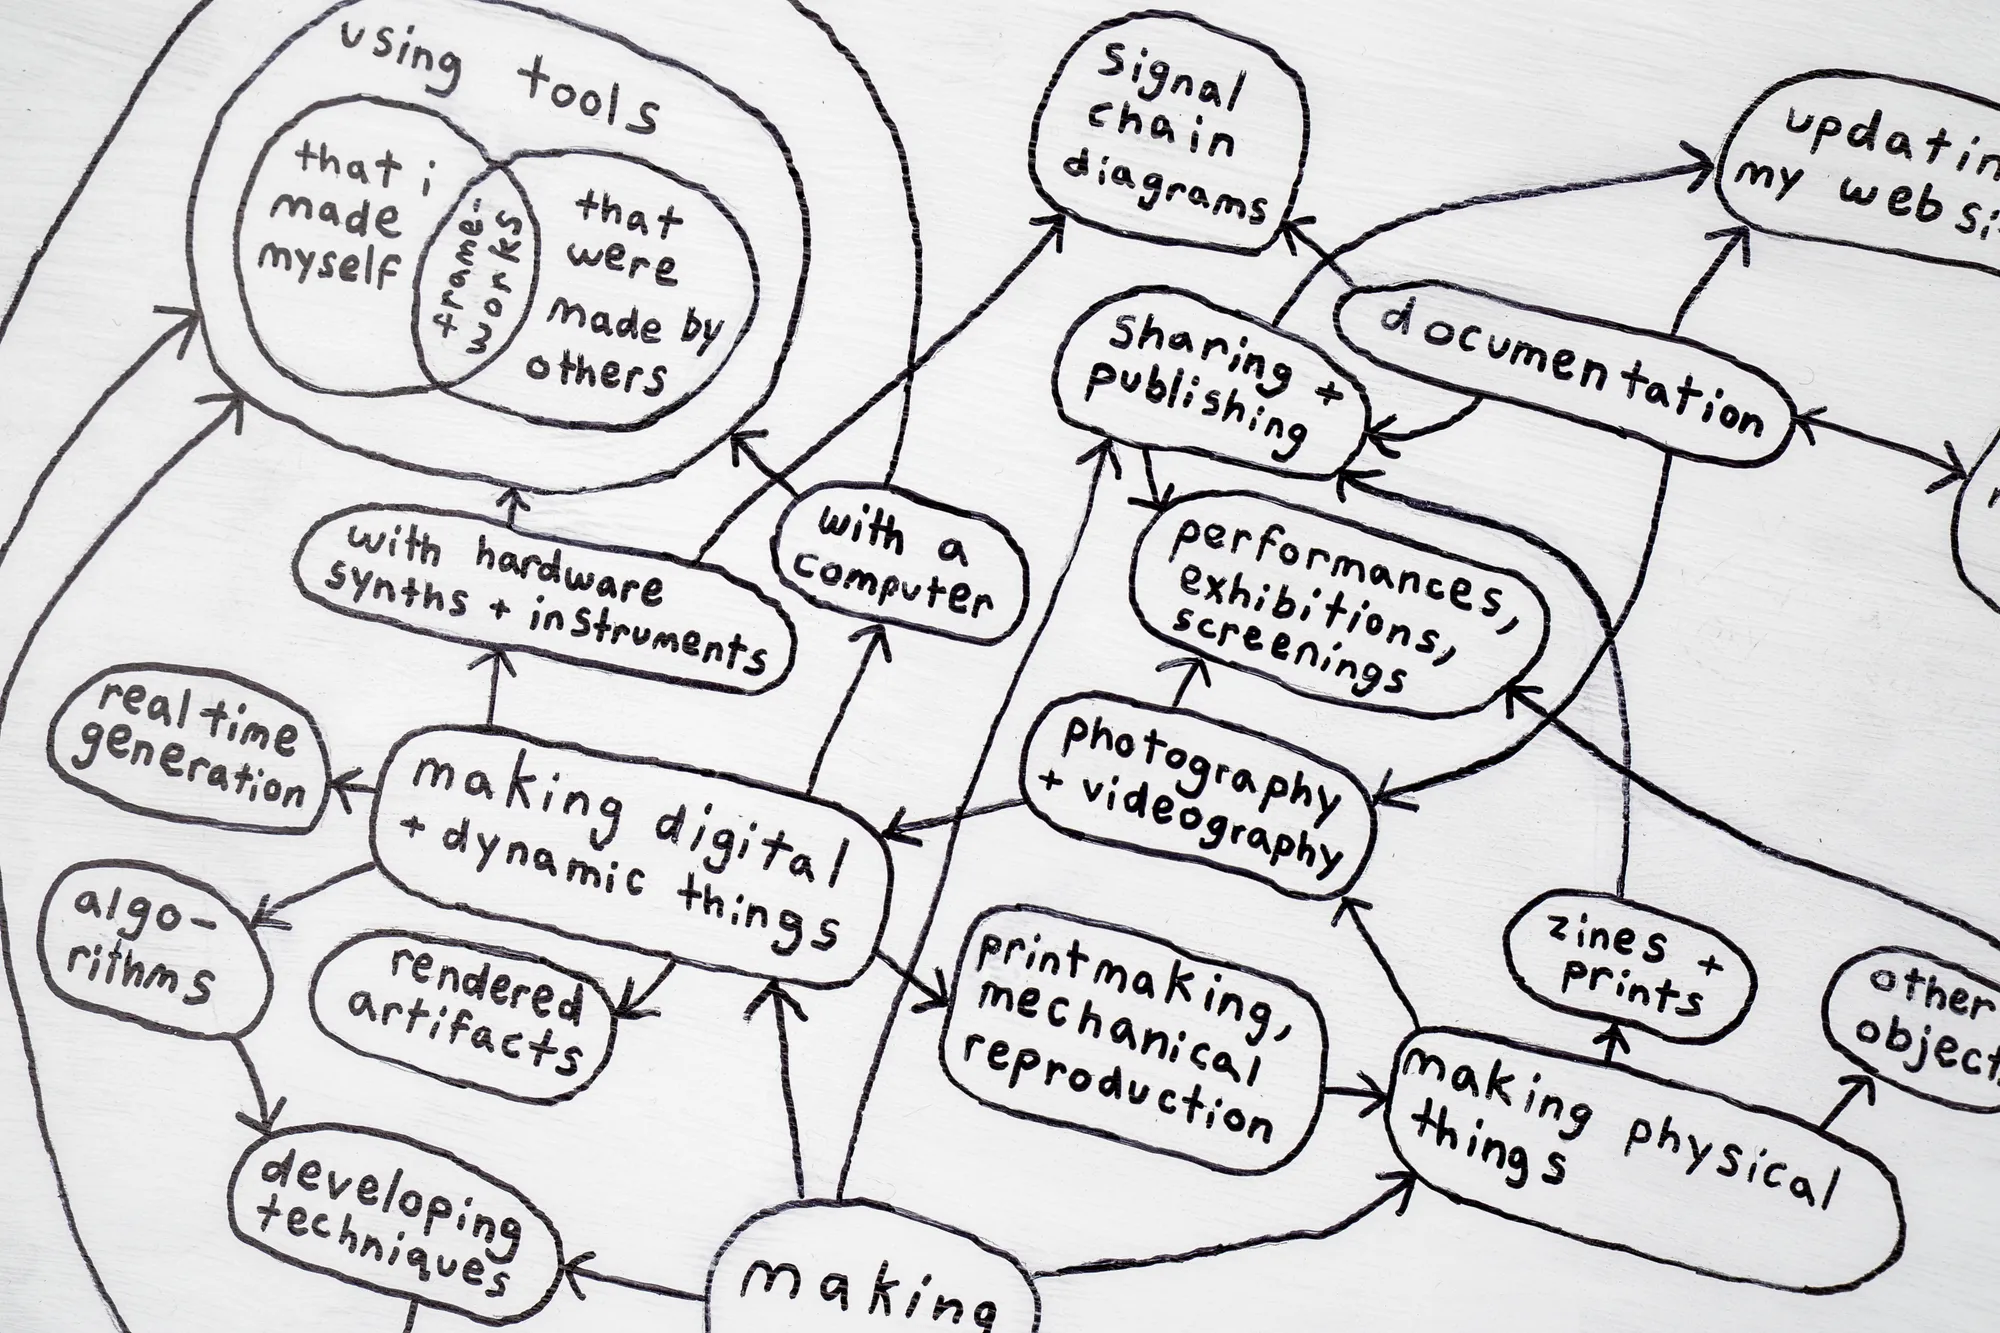 using tools
that i
made
myself
frame-
works
that
were
made by
others
signal
chain
diagrams
my web
documentation
sharing +
publishing
with a
computer
with hardware
synths + instruments
performances,
exhibitions,
screenings
real time
generation
making digital
+ dynamic things
photography
+ videography
algo-
rithms
rendered
artifacts
printmaking,
mechanical
reproduction
zines +
prints
other
making physical
things
developing
techniques
making